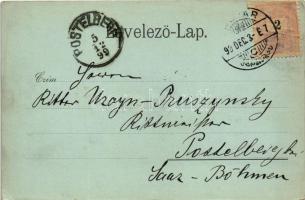 Levelező-Lap.
POSTELBERG
5
12
99
99 DEC. 3 - E 7
2
Czim
Herrn
Ritter Uzayn-Pruszynsky
Rittmeister
Postelberg
Saaz - Böhmen